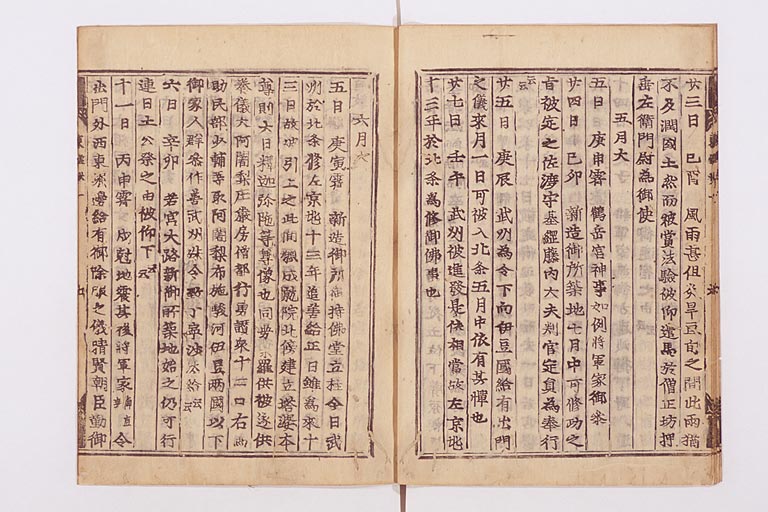 廿三日 己酉 風雨甚但炎旱亘旬之間此雨猶
不及潤國土然而被賞法驗被仰遣馬於僧正坊押
垂左衛門尉為御使
五月大
五日 庚申霽 鶴岳宮神事如例將軍家御參
云云
廿四日 己卯 新造御所築地七月中可修功之
旨被定之佐渡守基綱藤內大夫判官定員為奉行
廿五日 庚辰 武州為令下向伊豆國給有出門
之儀來月一日可被入北条五月中依有其憚也
廿七日 壬午 武州被進發是依相當故左京兆
十三年於北条為修御佛事也
六月大
五日 庚寅霽 新造御所御持佛堂五柱今日武
州於北条修左京兆十三年追善給正日雖為來十
三日故被引上之此間願成就院北傍建立塔婆本
尊則大日釋迦弥陁等尊像也同勢曼羅供被遂供
養儀大阿闍梨庄嚴房僧都行勇讃衆十二口右馬
助民部少輔等取阿闍梨布施駿河伊豆兩國以下
御家人群參作善武州殊令 丁寧沙汰給云云
六日 辛卯 若宮大路新御所築地始之仍可行
連日土公祭之由被仰下云云
十一日 丙申霽 戌尅地震其後將軍家 令
出門外西東 給有御除服之儀晴賢朝臣勤御